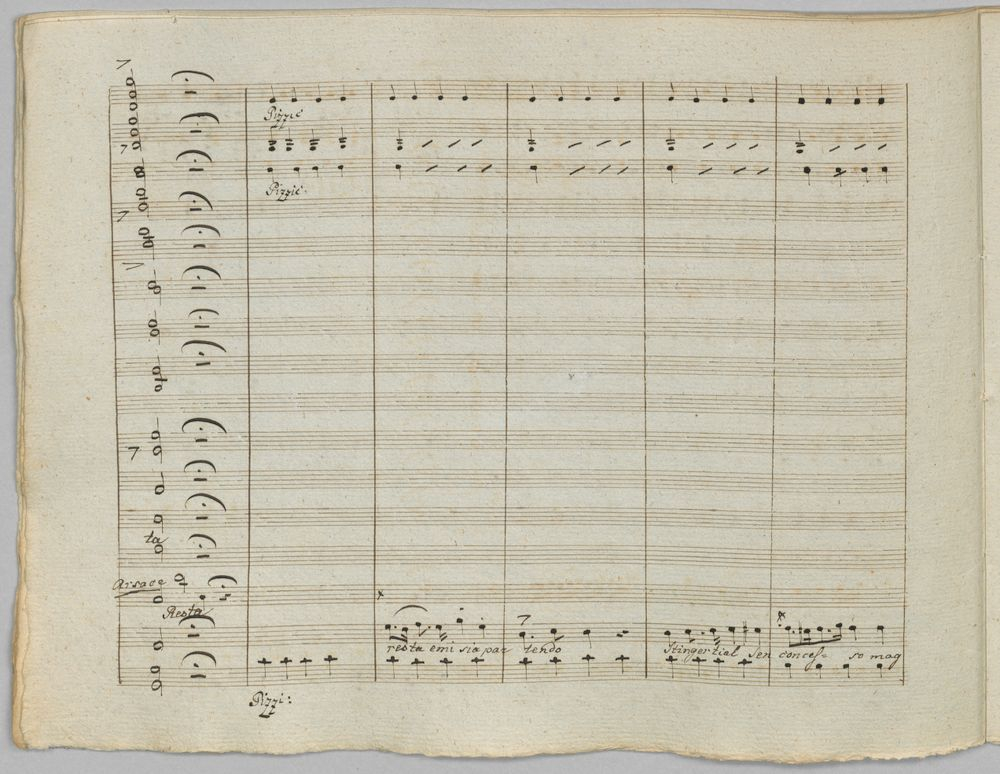 Pizzic
Pizzic:
ta
Arsace
Resta
resta e mi sia par tendo
Stinger al sen conces= so mag
Pizzi: